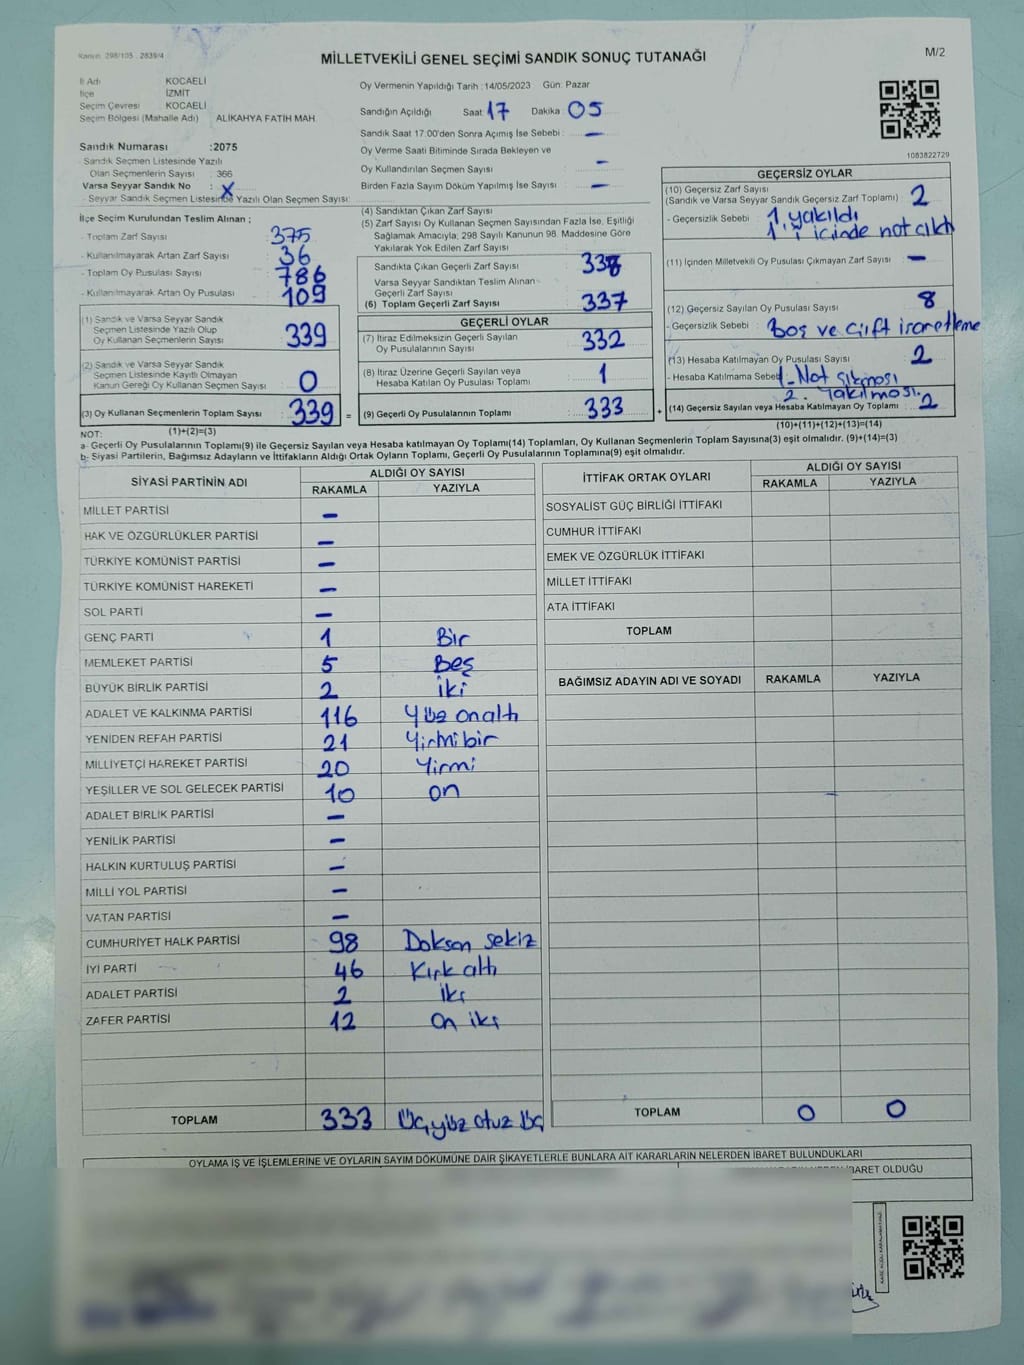 Kanun: 298/105 . 2839/4
MİLLETVEKİLİ GENEL SEÇİMİ SANDIK SONUÇ TUTANAĞI
M/2
İl Adı KOCAELİ
İlçe İZMİT
Seçim Çevresi KOCAELİ
Seçim Bölgesi (Mahalle Adı) ALİKAHYA FATİH MAH.
Sandık Numarası :2075
- Sandık Seçmen Listesinde Yazılı
Olan Seçmenlerin Sayısı : 366
Varsa Seyyar Sandık No : X
- Seyyar Sandık Seçmen Listesinde Yazılı Olan Seçmen Sayısı:
Oy Vermenin Yapıldığı Tarih :14/05/2023 Gün: Pazar
Sandığın Açıldığı Saat: 17 Dakika: 05
Sandık Saat 17.00'den Sonra Açımış İse Sebebi : –
Oy Verme Saati Bitiminde Sırada Bekleyen ve
Oy Kullandırılan Seçmen Sayısı : –
Birden Fazla Sayım Döküm Yapılmış İse Sayısı : –
1083822729
İlçe Seçim Kurulundan Teslim Alınan ;
- Toplam Zarf Sayısı : 375
- Kullanılmayarak Artan Zarf Sayısı : 36
- Toplam Oy Pusulası Sayısı : 786
- Kullanılmayarak Artan Oy Pusulası : 109
(1) Sandık ve Varsa Seyyar Sandık
Seçmen Listesinde Yazılı Olup
Oy Kullanan Seçmenlerin Sayısı : 339
(2) Sandık ve Varsa Seyyar Sandık
Seçmen Listesinde Kayıtlı Olmayan
Kanun Gereği Oy Kullanan Seçmen Sayısı : 0
(3) Oy Kullanan Seçmenlerin Toplam Sayısı : 339 =
(1)+(2)=(3)
(4) Sandıktan Çıkan Zarf Sayısı :
(5) Zarf Sayısı Oy Kullanan Seçmen Sayısından Fazla İse, Eşitliği
Sağlamak Amacıyla; 298 Sayılı Kanunun 98. Maddesine Göre
Yakılarak Yok Edilen Zarf Sayısı :
Sandıkta Çıkan Geçerli Zarf Sayısı :
Varsa Seyyar Sandıktan Teslim Alınan
Geçerli Zarf Sayısı :
(6) Toplam Geçerli Zarf Sayısı : 337
GEÇERLİ OYLAR
(7) İtiraz Edilmeksizin Geçerli Sayılan
Oy Pusulalarının Sayısı : 332
(8) İtiraz Üzerine Geçerli Sayılan veya
Hesaba Katılan Oy Pusulası Toplamı : 1
(9) Geçerli Oy Pusulalarının Toplamı : 333 +
GEÇERSİZ OYLAR
(10) Geçersiz Zarf Sayısı
(Sandık ve Varsa Seyyar Sandık Geçersiz Zarf Toplamı) : 2
- Geçersizlik Sebebi : 1. yakıldı
1. içinde not çıktı
(11) İçinden Milletvekili Oy Pusulası Çıkmayan Zarf Sayısı : –
(12) Geçersiz Sayılan Oy Pusulası Sayısı : 8
- Geçersizlik Sebebi : Boş ve çift işaretleme
(13) Hesaba Katılmayan Oy Pusulası Sayısı : 2
- Hesaba Katılmama Sebebi : 1-Not çıkması
2. Yakılması.
(14) Geçersiz Sayılan veya Hesaba Katılmayan Oy Toplamı : 2
(10)+(11)+(12)+(13)=(14)
NOT:
a- Geçerli Oy Pusulalarının Toplamı(9) ile Geçersiz Sayılan veya Hesaba katılmayan Oy Toplamı(14) Toplamları, Oy Kullanan Seçmenlerin Toplam Sayısına(3) eşit olmalıdır. (9)+(14)=(3)
b- Siyasi Partilerin, Bağımsız Adayların ve İttifakların Aldığı Ortak Oyların Toplamı, Geçerli Oy Pusulalarının Toplamına(9) eşit olmalıdır.
SİYASİ PARTİNİN ADI ALDIĞI OY SAYISI
RAKAMLA YAZIYLA
MİLLET PARTİSİ –
HAK VE ÖZGÜRLÜKLER PARTİSİ –
TÜRKİYE KOMÜNİST PARTİSİ –
TÜRKİYE KOMÜNİST HAREKETİ –
SOL PARTİ –
GENÇ PARTİ 1 Bir
MEMLEKET PARTİSİ 5 Beş
BÜYÜK BİRLİK PARTİSİ 2 iki
ADALET VE KALKINMA PARTİSİ 116 Yüz onaltı
YENİDEN REFAH PARTİSİ 21 Yirmi bir
MİLLİYETÇİ HAREKET PARTİSİ 20 Yirmi
YEŞİLLER VE SOL GELECEK PARTİSİ 10 on
ADALET BİRLİK PARTİSİ –
YENİLİK PARTİSİ –
HALKIN KURTULUŞ PARTİSİ –
MİLLİ YOL PARTİSİ –
VATAN PARTİSİ –
CUMHURİYET HALK PARTİSİ 98 Doksan sekiz
İYİ PARTİ 46 Kırk altı
ADALET PARTİSİ 2 İki
ZAFER PARTİSİ 12 On iki
TOPLAM 333 Üçyüz otuz üç
İTTİFAK ORTAK OYLARI ALDIĞI OY SAYISI
RAKAMLA YAZIYLA
SOSYALİST GÜÇ BİRLİĞİ İTTİFAKI
CUMHUR İTTİFAKI
EMEK VE ÖZGÜRLÜK İTTİFAKI
MİLLET İTTİFAKI
ATA İTTİFAKI
TOPLAM
BAĞIMSIZ ADAYIN ADI VE SOYADI RAKAMLA YAZIYLA
TOPLAM 0 0
OYLAMA İŞ VE İŞLEMLERİNE VE OYLARIN SAYIM DÖKÜMÜNE DAİR ŞİKAYETLERLE BUNLARA AİT KARARLARIN NELERDEN İBARET BULUNDUKLARI
İBARET OLDUĞU